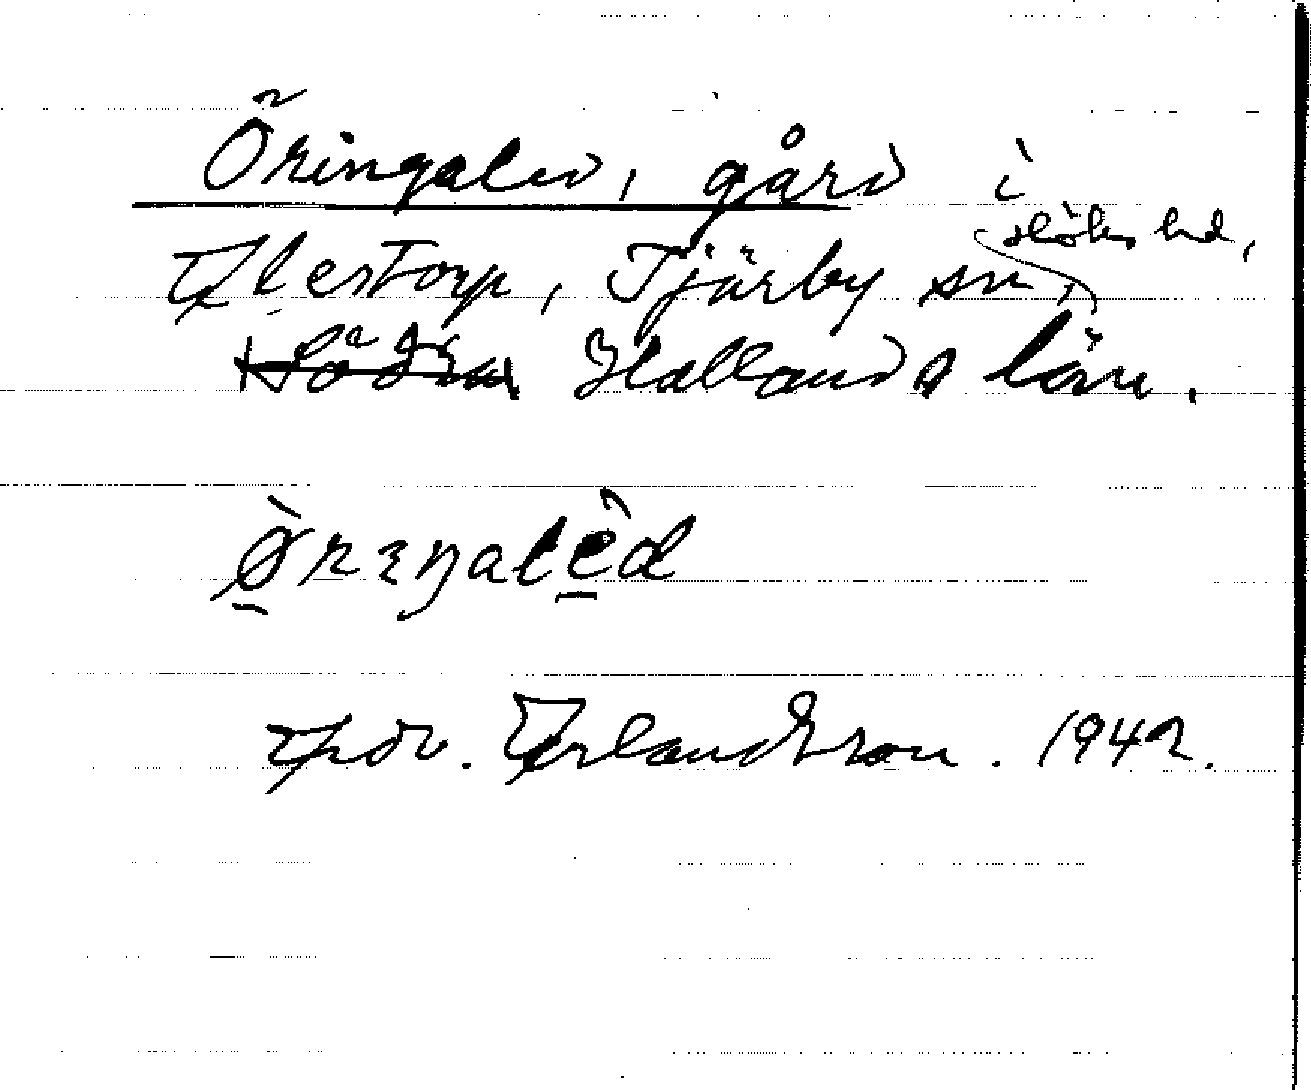 Öringaled, gård i
Elestorp, Tjärby sn, Höks hd,
Södra Hallands län.
ø̀rɛŋalèd
Erlandsson. 1942.